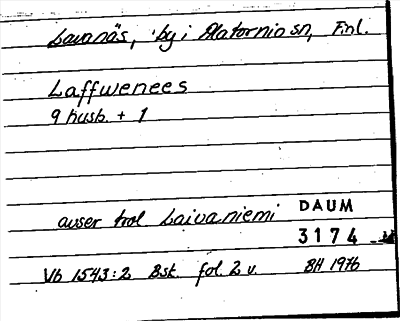 Lavanäs, by i Alatornio sn, Finl.
Laffwenees
9 husb. + 1
avser trol Laivaniemi
DAUM
3174
Vb 1543:2 Bst. fol. 2 v.
BH 1976